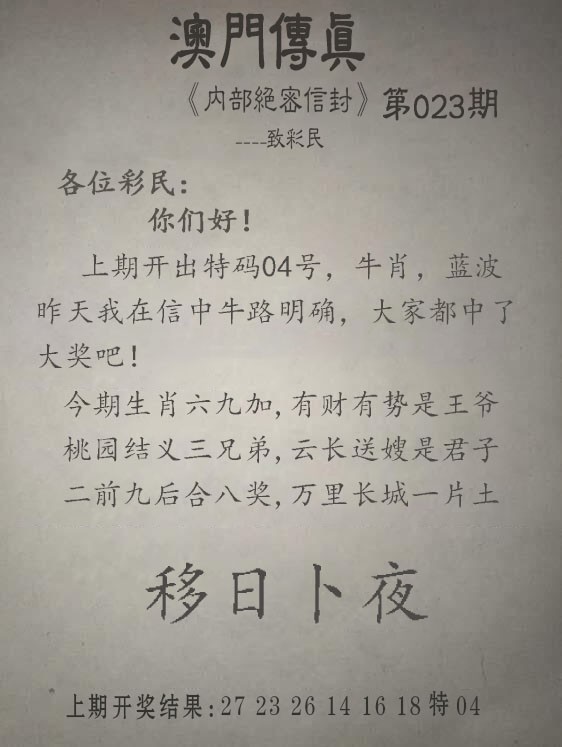 澳門傳真
《内部絕密信封》第023期
----致彩民
各位彩民:
你们好!
上期开出特码04号,牛肖,蓝波
昨天我在信中牛路明确,大家都中了
大奖吧!
今期生肖六九加,有财有势是王爷
桃园结义三兄弟,云长送嫂是君子
二前九后合八奖,万里长城一片土
移日卜夜
上期开奖结果:27 23 26 14 16 18特04